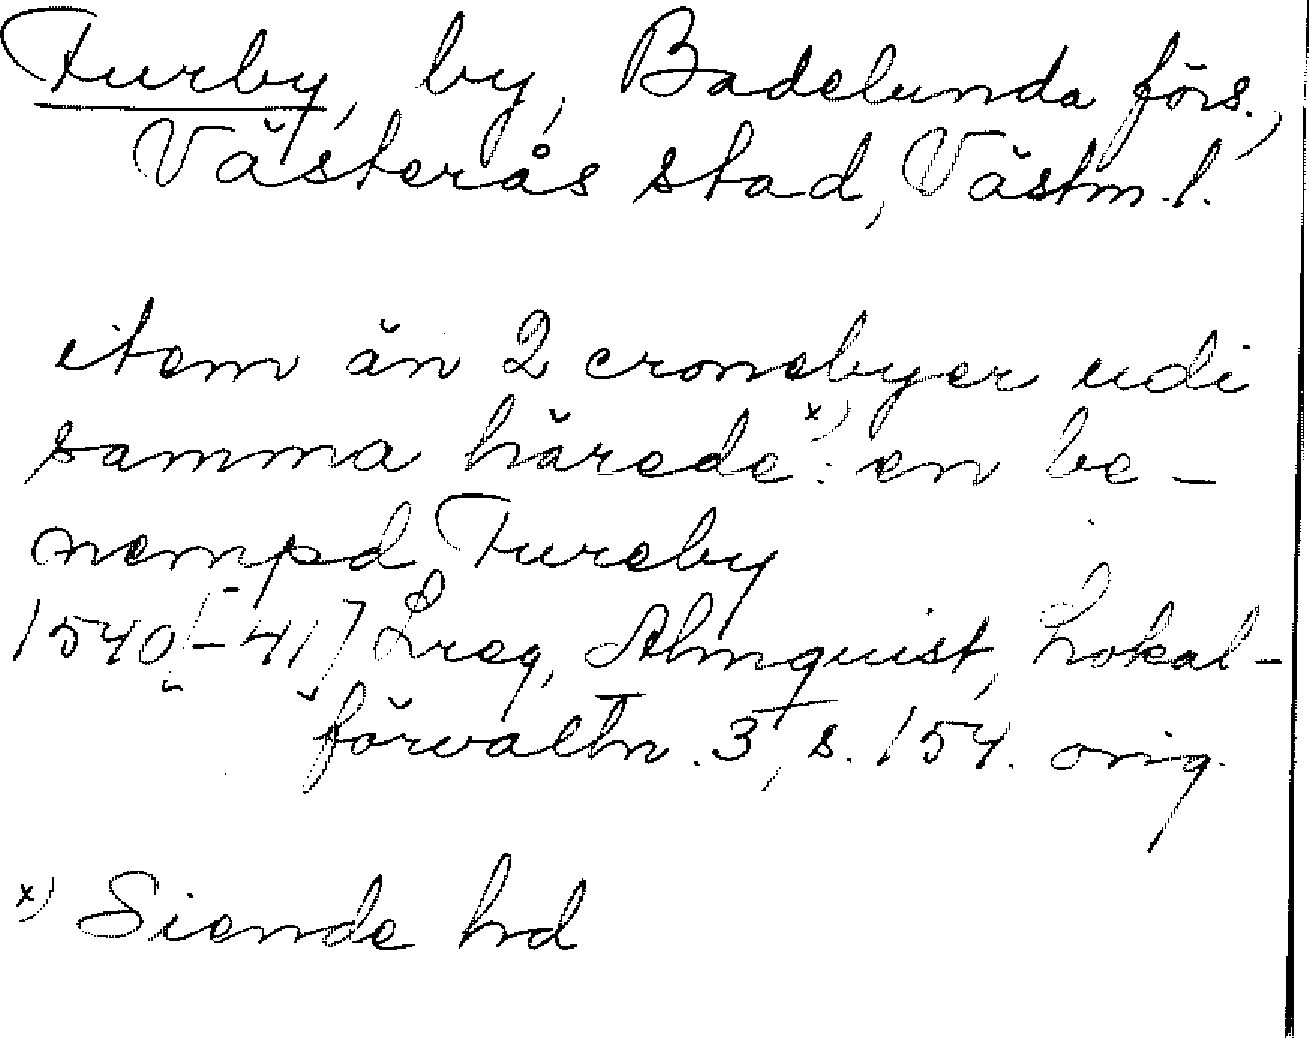 Furby, by, Badelunda förs.,
Västerås stad, Västm. l.
item än 2 cronebyer udi
samma härede x): en be-
nempd Fureby
1540[-41] Lreg, Almquist, Lokal-
förvaltn. 3, s. 154. orig.
x) Siende hd